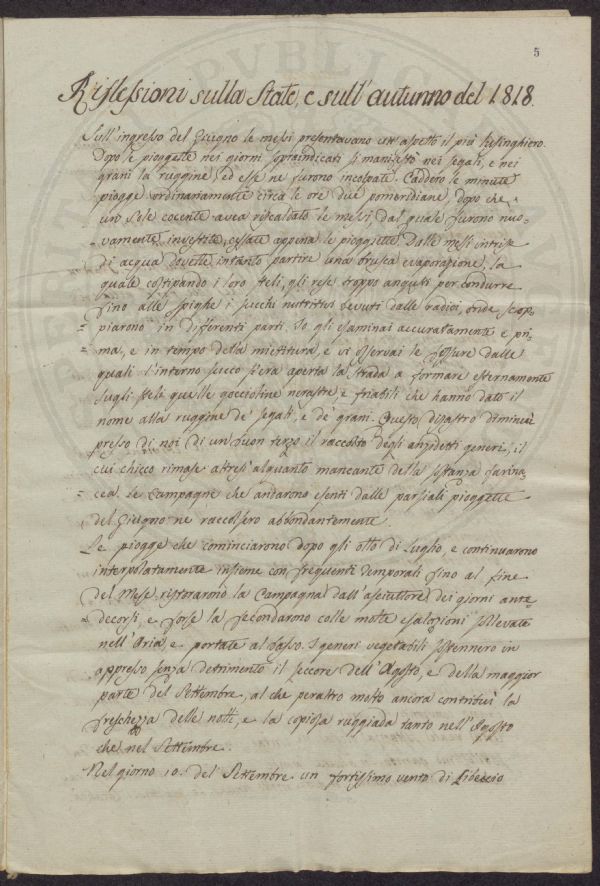 5
Riflessioni sulla State, e sull'autunno del 1818.
Sull'ingresso del Giugno le messi presentavano un'aspetto il più lusinghiero.
Dopo le pioggette nei giorni sopraindicati si manifestò nei segali, e nei
grani la ruggine, ed esse ne furono incolpate. Caddero le minute
piogge ordinariamente circa le ore due pomeridiane, dopo che
un Sole cocente avea riscaldato le messi, dal quale furono nuo-
-vamente investite, cessate appena le pioggette. Dalle messi intrise
di acqua dovette intanto partire una brusca evaporazione, la
quale costipando i loro steli, gli rese troppo angusti per condurre
fino alle spighe i succhi nutritivi devuti dalle radici, onde scop-
=piarono in differenti parti. Io gli esaminai accuratamente e pri-
=ma, e in tempo della mietitura, e vi osservai le fessure dalle
quali l'interno succo s'era aperta la strada a formare esternamente
sugli steli quelle goccioline nerastre, e friabili che hanno dato il
nome alla ruggine de' segali, e de' grani. Questo disastro diminuì
presso di noi di un buon terzo il raccolto degli anzidetti generi, il
cui chicco rimase altresì alquanto mancante della sostanza farina-
=cea. Le Campagne che andarono esenti dalle parziali pioggette
del Giugno ne raccolsero abbondantemente.
Le piogge che cominciarono dopo gli otto di Luglio, e continuarono
interpolatamente insieme con frequenti temporali fino al fine
del Mese, ristorarono la Campagna dall'asciuttore dei giorni ante-
=decorsi, e forse la fecondarono colle molte esalazioni sollevate
nell'Aria, e portate al basso. I generi vegetabili sostennero in
appresso senza detrimento il seccore dell'Agosto, e della maggior
parte del Settembre, al che peraltro molto ancora contribuì la
freschezza delle notti, e la copiosa ruggiada tanto nell'Agosto
che nel Settembre.
Nel giorno 10. del Settembre un fortissimo vento di Libeccio